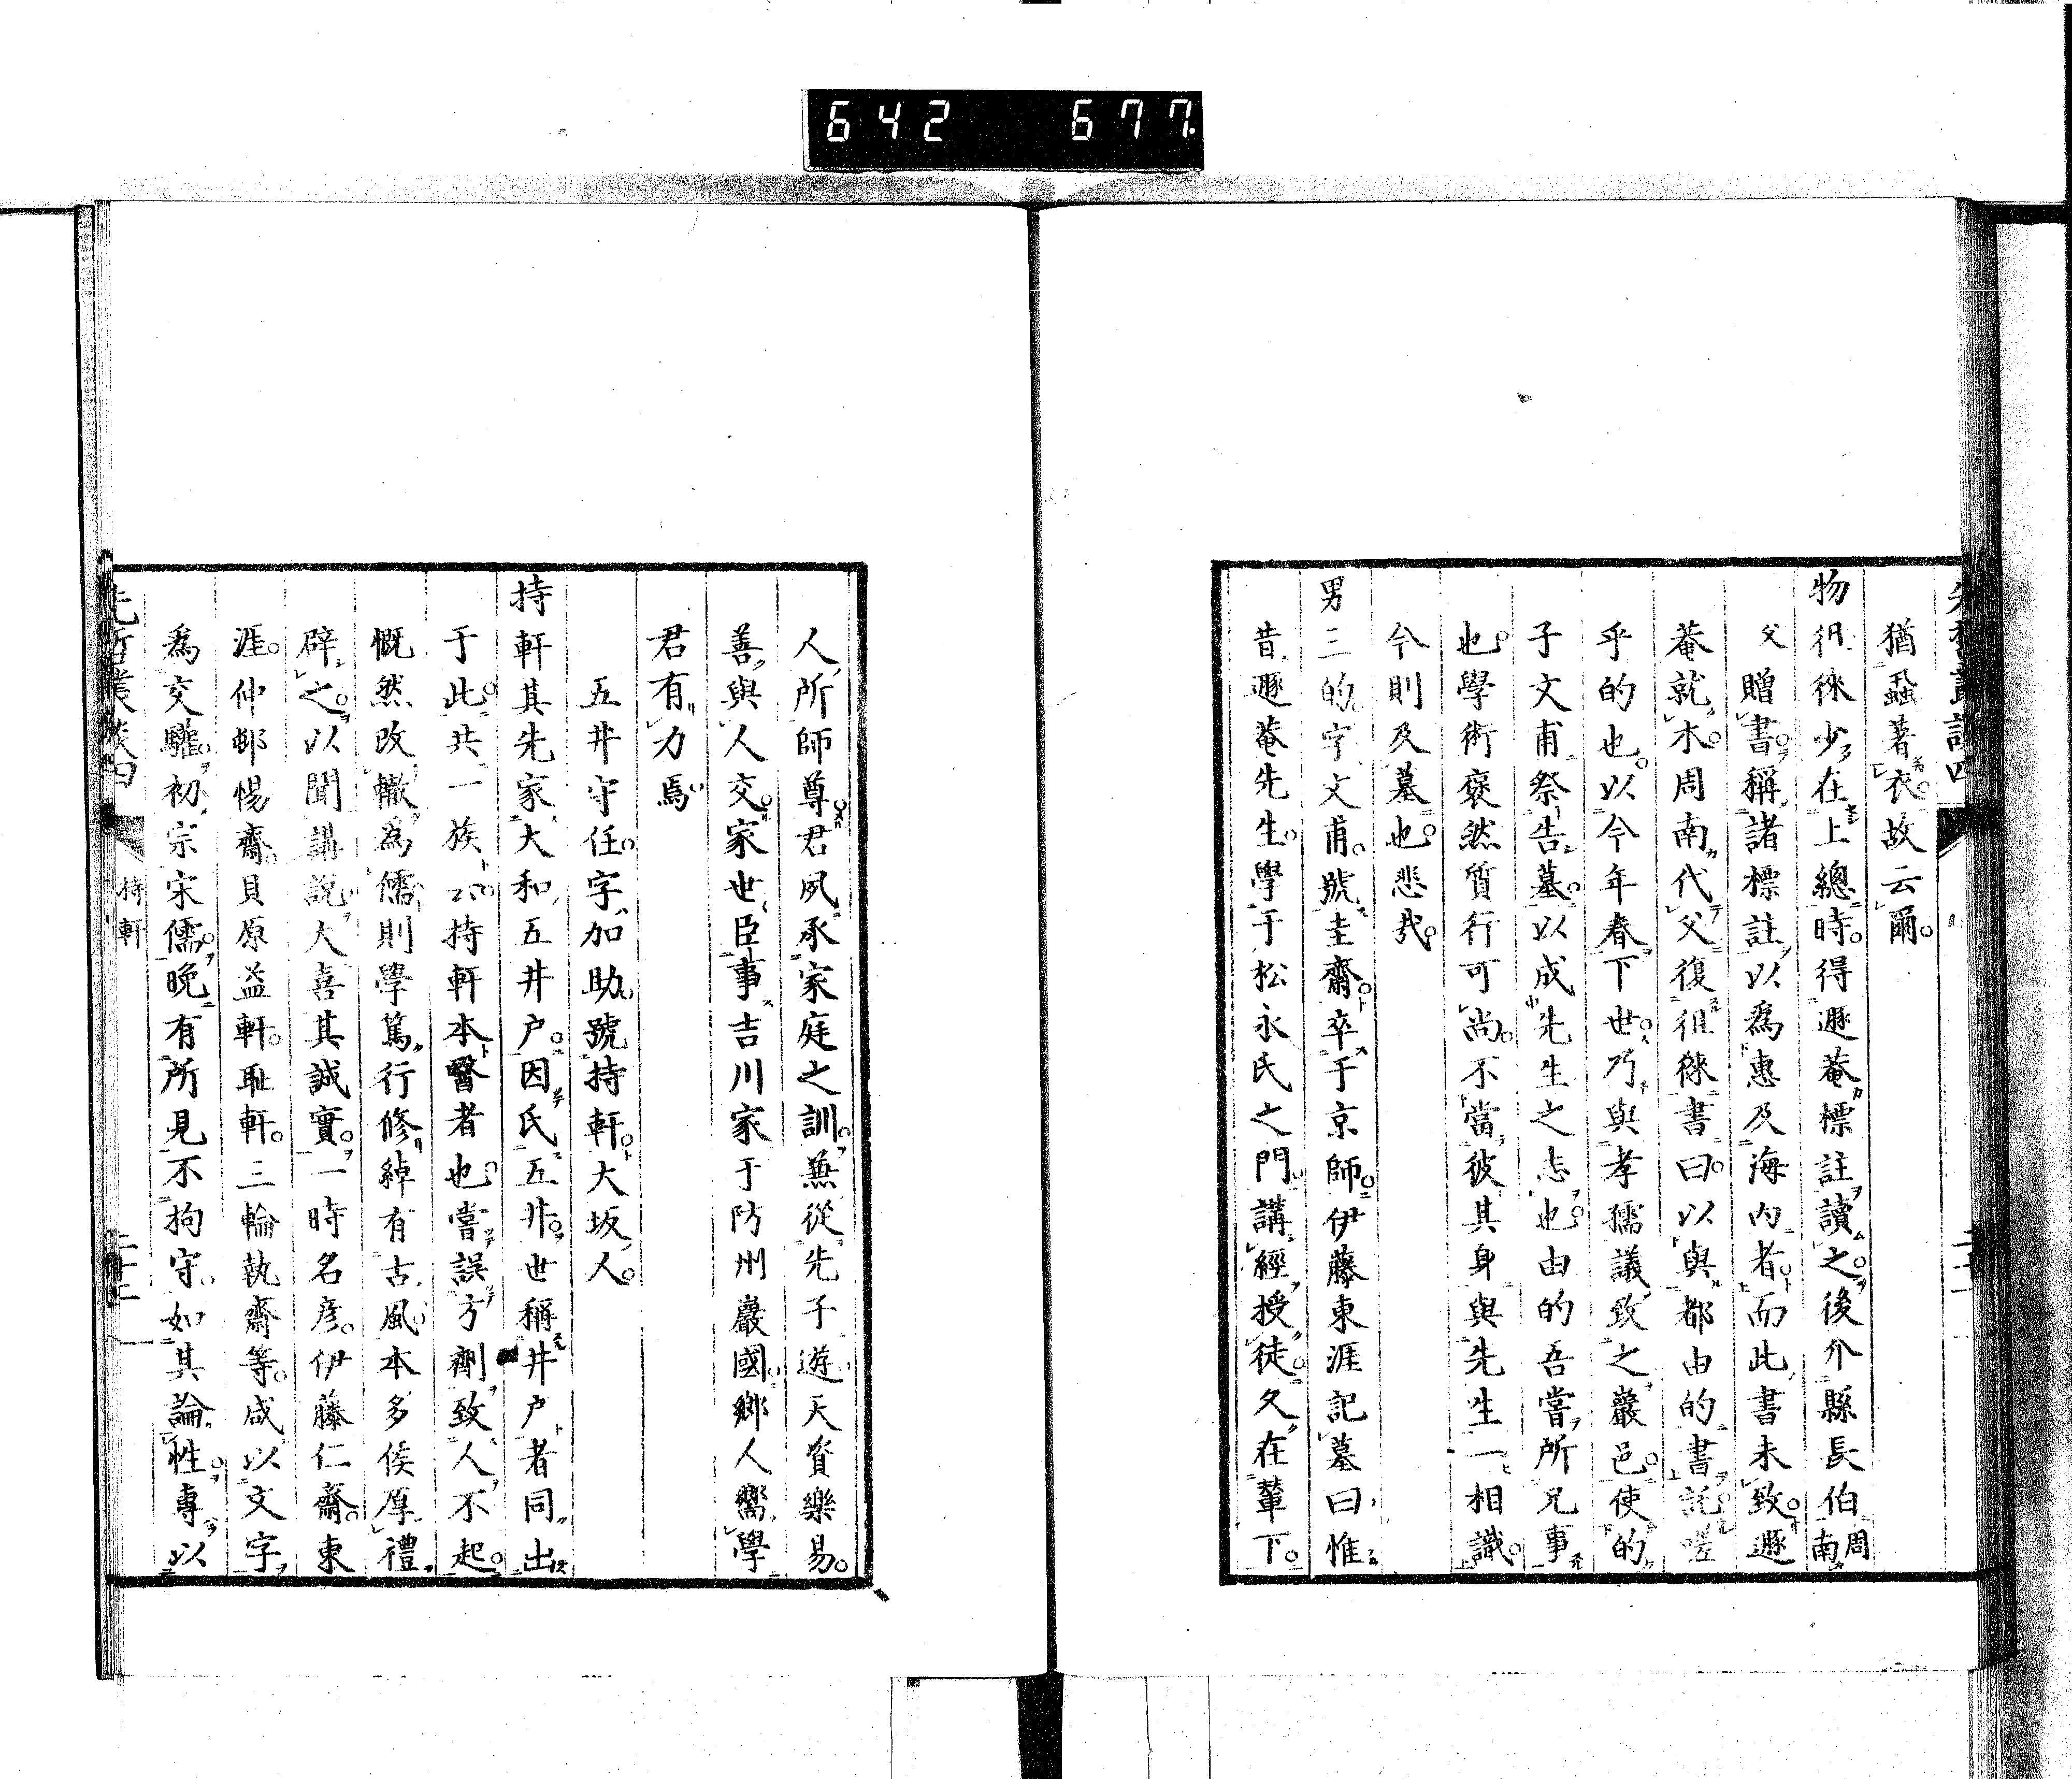 642 677
猶蝨著衣。故云爾。
物徂徠少在上總時。得遯菴標註讀之。後介縣長伯周南
父贈書。稱諸標註。以為惠及海內者。而此書未致。遯
菴就木。周南代父復徂徠書曰。以與都由的書託嗟
乎的也。以今年春下世。乃與孝孺議致之巖邑。使的
子文甫祭告墓。以成先生之志也。由的吾嘗所兄事
也。學術裒然質行可尚。不當彼其身與先生一相識。
今則及墓也。悲哉。
男三的字文甫。號圭齋。卒于京師。伊藤東涯記墓曰惟
昔遯菴先生。學于松永氏之門講經授徒。久在輦下。
人所師尊君夙承家庭之訓。兼從先子遊天資樂易。
善與人交。家世臣事吉川家于防州巖國。鄉人嚮學
君有力焉
五井守任。字加助。號持軒。大坂人。
持軒其先家大和五井戶。因氏五井。世稱井戶者同出
于此。共一族云。持軒本醫者也。嘗誤方劑致人不起。
慨然改轍為儒。則學篤行修。綽有古風。本多侯厚禮
辟之。以聞講說大喜其誠實。一時名彥。伊藤仁齋。東
涯。仲邨惕齋。貝原益軒。恥軒。三輪執齋等。咸以文字
為交驩。初宗宋儒。晚有所見不拘守。如其論性。專以
先哲叢談四
持軒
二十二